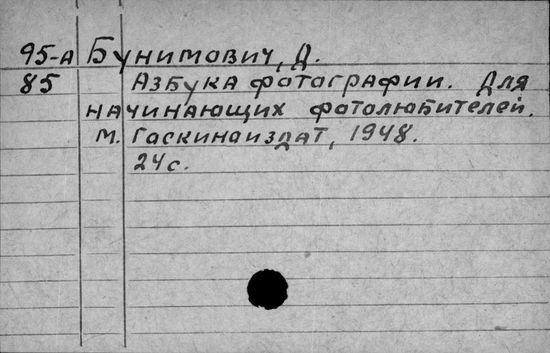 95-А Бунимович, Д.
85 Азбука фотографии. Для
начинающих фотолюбителей.
М. Госкиноиздат, 1948.
24с.